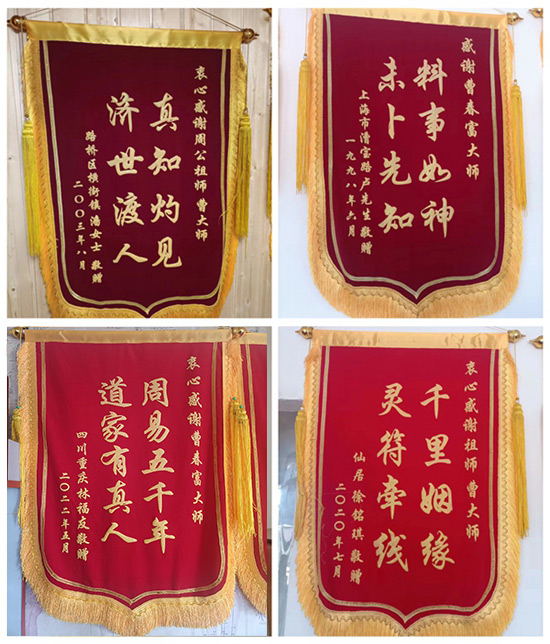 衷心感谢周公祖师曹大师
真知灼见
济世渡人
路桥区横街镇潘女士敬赠
二〇〇三年八月
感谢曹春富大师
料事如神
未卜先知
上海市漕宝路卢先生敬赠
一九九八年六月
衷心感谢曹春富大师
周易五千年
道家有真人
四川重庆林福友敬赠
二〇二二年五月
衷心感谢祖师曹大师
千里姻缘
灵符牵线
仙居徐铭琪敬赠
二〇二〇年七月